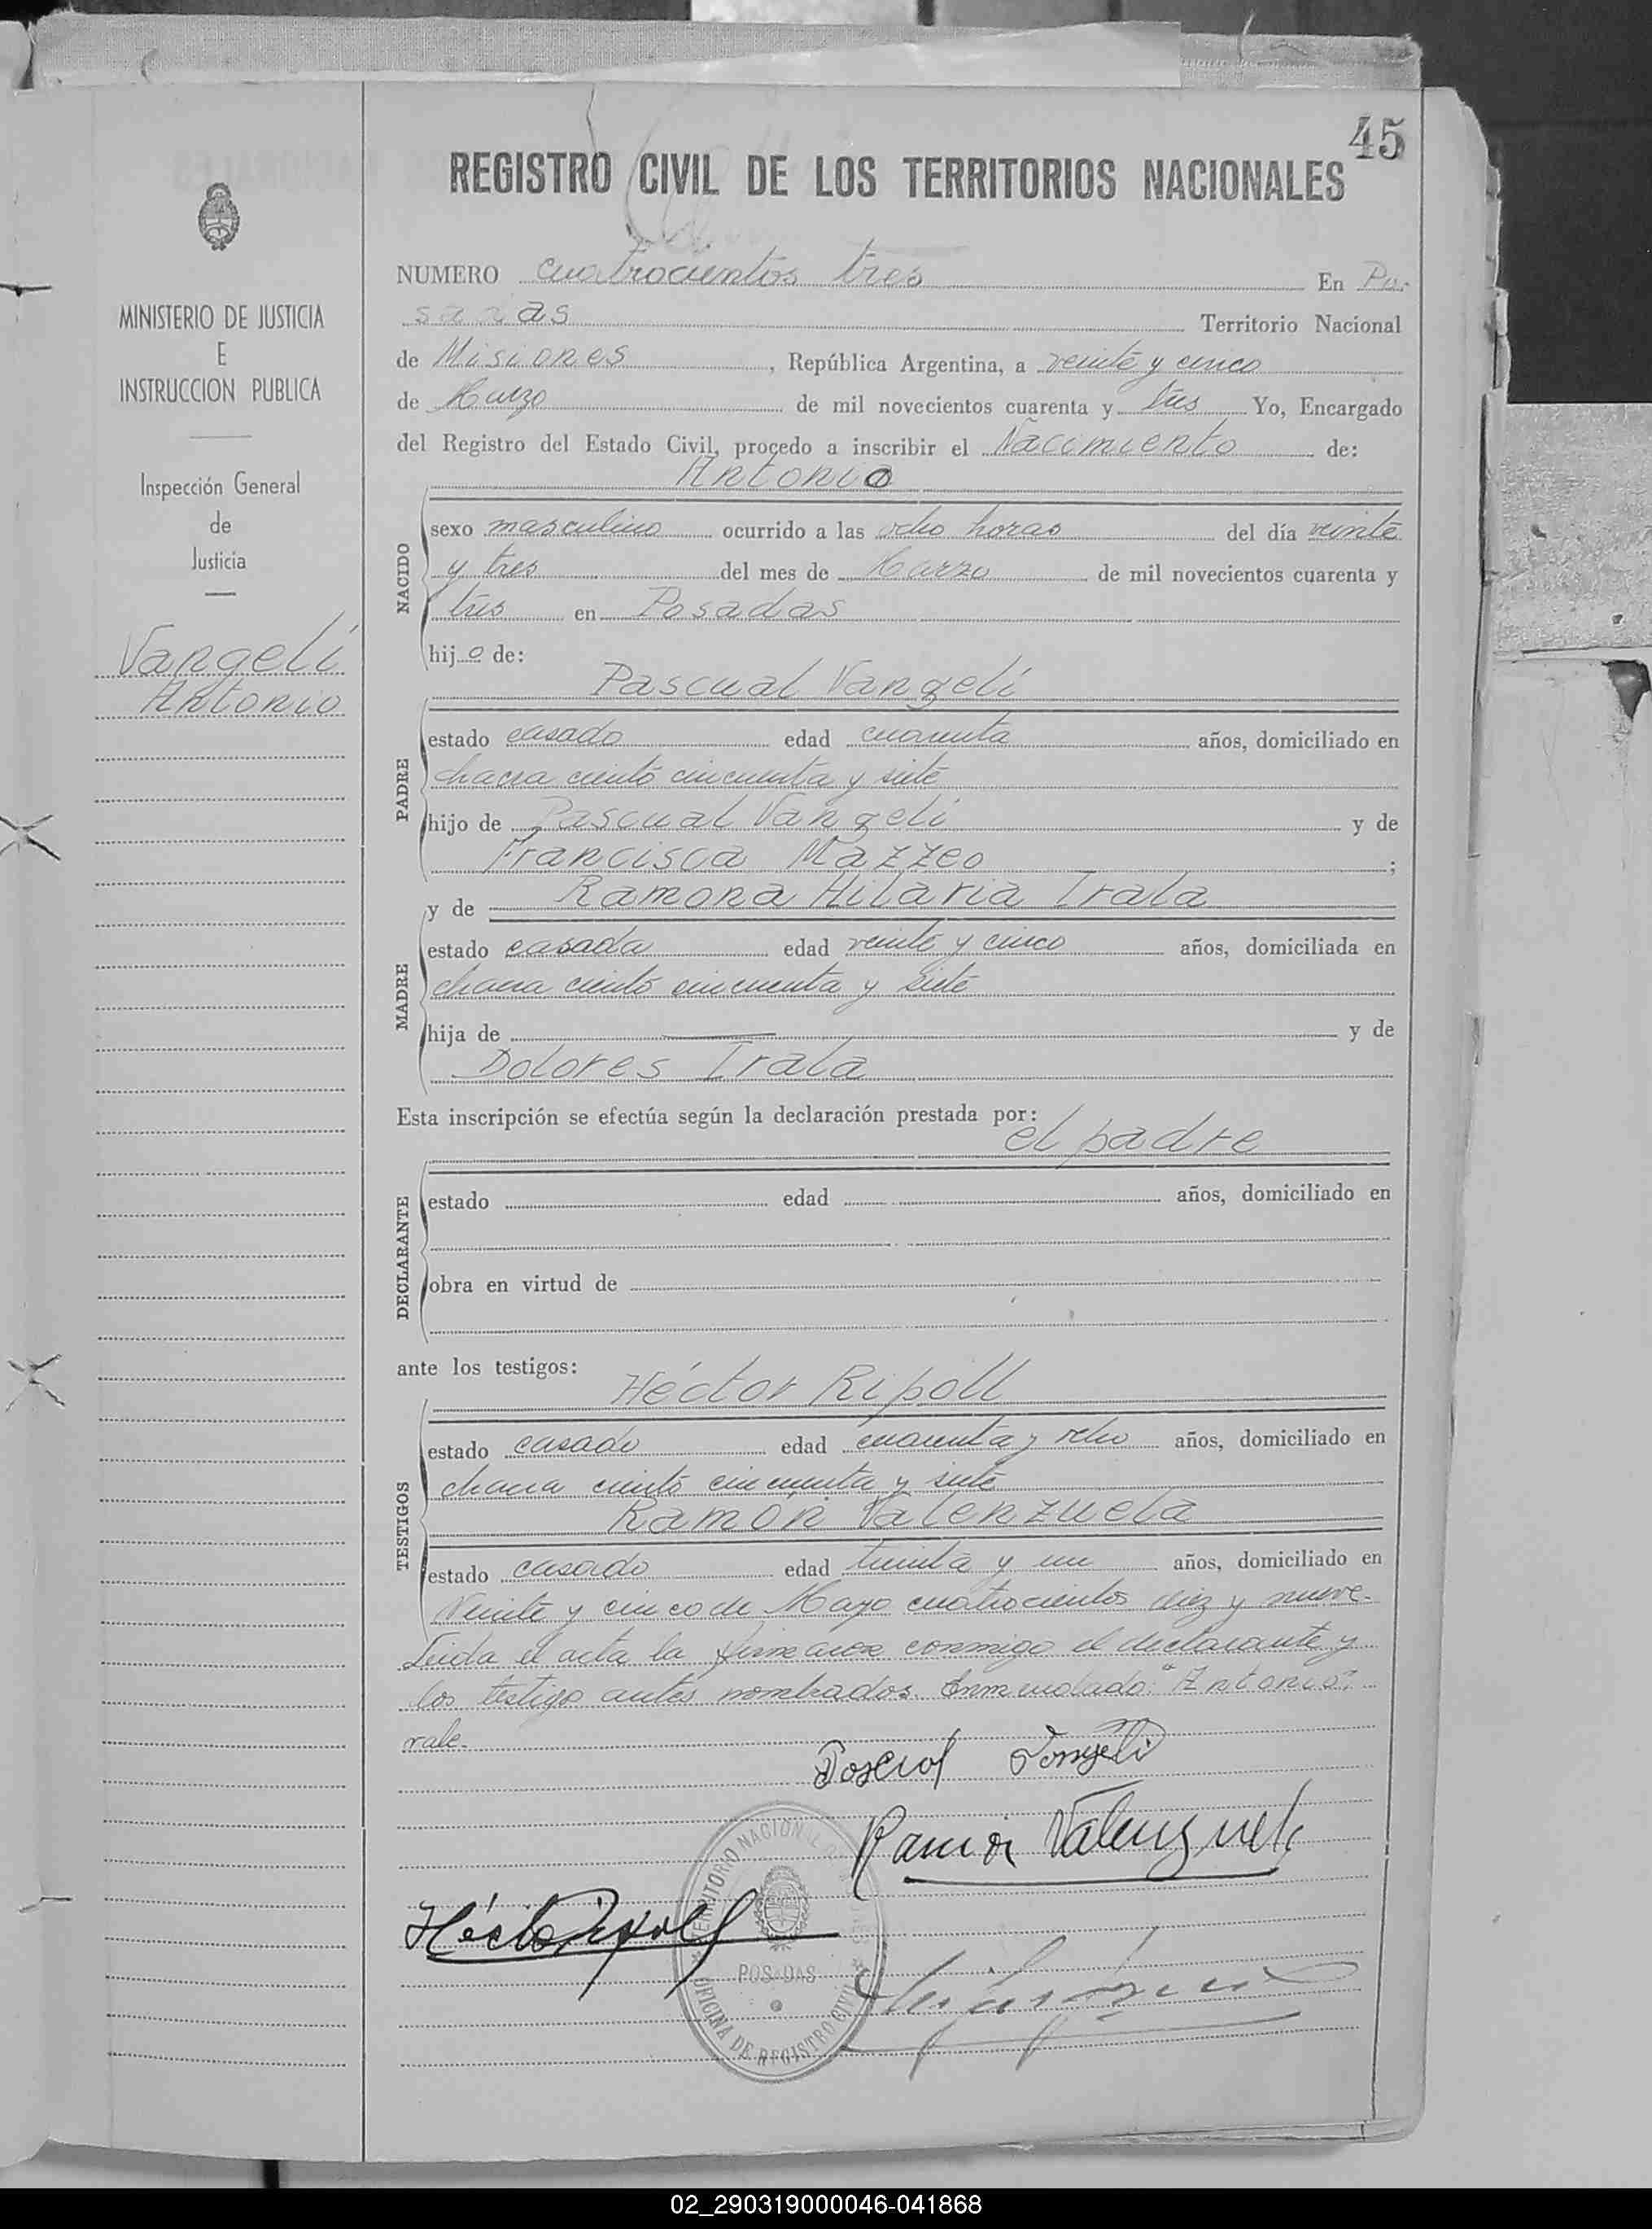 45
REGISTRO CIVIL DE LOS TERRITORIOS NACIONALES
MINISTERIO DE JUSTICIA
E
INSTRUCCION PUBLICA
Inspección General
de
Justicia
Vangeli
Antonio
NUMERO cuatrocientos tres En Po-
sadas Territorio Nacional
de Misiones, República Argentina, a veinte y cinco
de Marzo de mil novecientos cuarenta y tres Yo, Encargado
del Registro del Estado Civil, procedo a inscribir el Nacimiento de:
Antonio
NACIDO
sexo masculino ocurrido a las ocho horas del día veinte
y tres del mes de Marzo de mil novecientos cuarenta y
tres en Posadas
hijo de:
Pascual Vangeli
PADRE
estado casado edad cuarenta años, domiciliado en
chacra ciento cincuenta y siete
hijo de Pascual Vangeli y de
Francisca Mazzeo;
y de Ramona Hilaria Irala
MADRE
estado casada edad veinte y cinco años, domiciliada en
chacra ciento cincuenta y siete
hija de — y de
Dolores Irala
Esta inscripción se efectúa según la declaración prestada por:
el padre
DECLARANTE
estado edad años, domiciliado en
obra en virtud de
ante los testigos:
Héctor Ripoll
TESTIGOS
estado casado edad cuarenta y ocho años, domiciliado en
chacra ciento cincuenta y siete
Ramón Valenzuela
estado casado edad treinta y un años, domiciliado en
Veinte y cinco de Mayo cuatrocientos diez y nueve.
Leida el acta la firmaron conmigo el declarante y
los testigo antes nombrados. Enmendado: "Antonio":
vale.
Poscual Vangeli
Ramón Valenzuela
Héctor Ripoll
TERRITORIO NACIONAL
POSADAS
OFICINA DE REGISTRO CIVIL
02_290319000046-041868